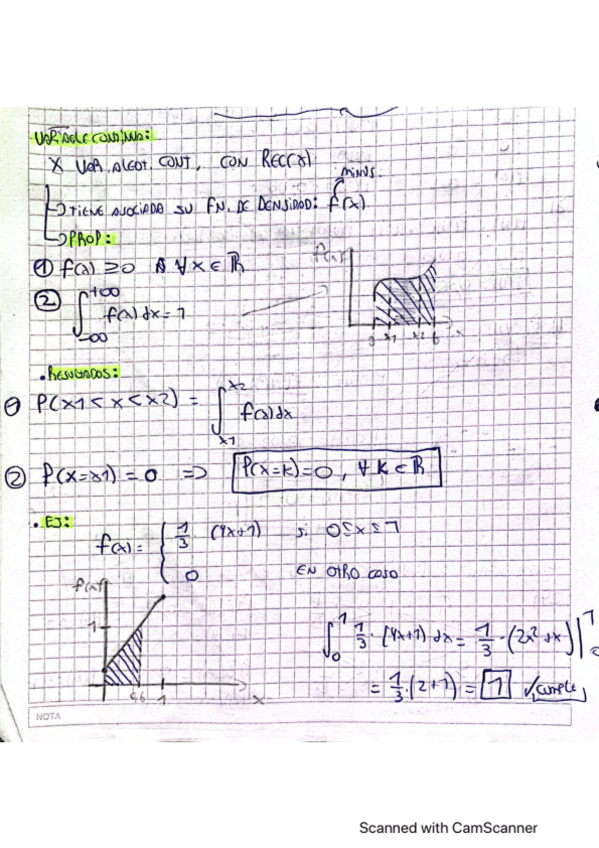 VARIABLE CONTINUA:
X VAR. ALEAT. CONT, CON REC(X)
TIENE ASOCIADA SU FN. DE DENSIDAD: f(x)
MINUS.
PROP:
① f(x) ≥ 0 ∀ x ∈ ℝ
② ∫_{-∞}^{+∞} f(x) dx = 1
f(x)
x1 x2 b
• RESULTADOS:
① P(x1 < x < x2) = ∫_{x1}^{x2} f(x) dx
② P(X = x1) = 0 ⇒ P(X = k) = 0, ∀ k ∈ ℝ
• EJ:
f(x) = { 1/3 (4x+1) si 0 ≤ x ≤ 1
0 EN OTRO CASO
f(x)
1
1 x
∫_0^1 1/3 · (4x+1) dx = 1/3 · (2x² + x) |_0^1
= 1/3 · (2+1) = 1 ✓ CUMPLE
NOTA
Scanned with CamScanner